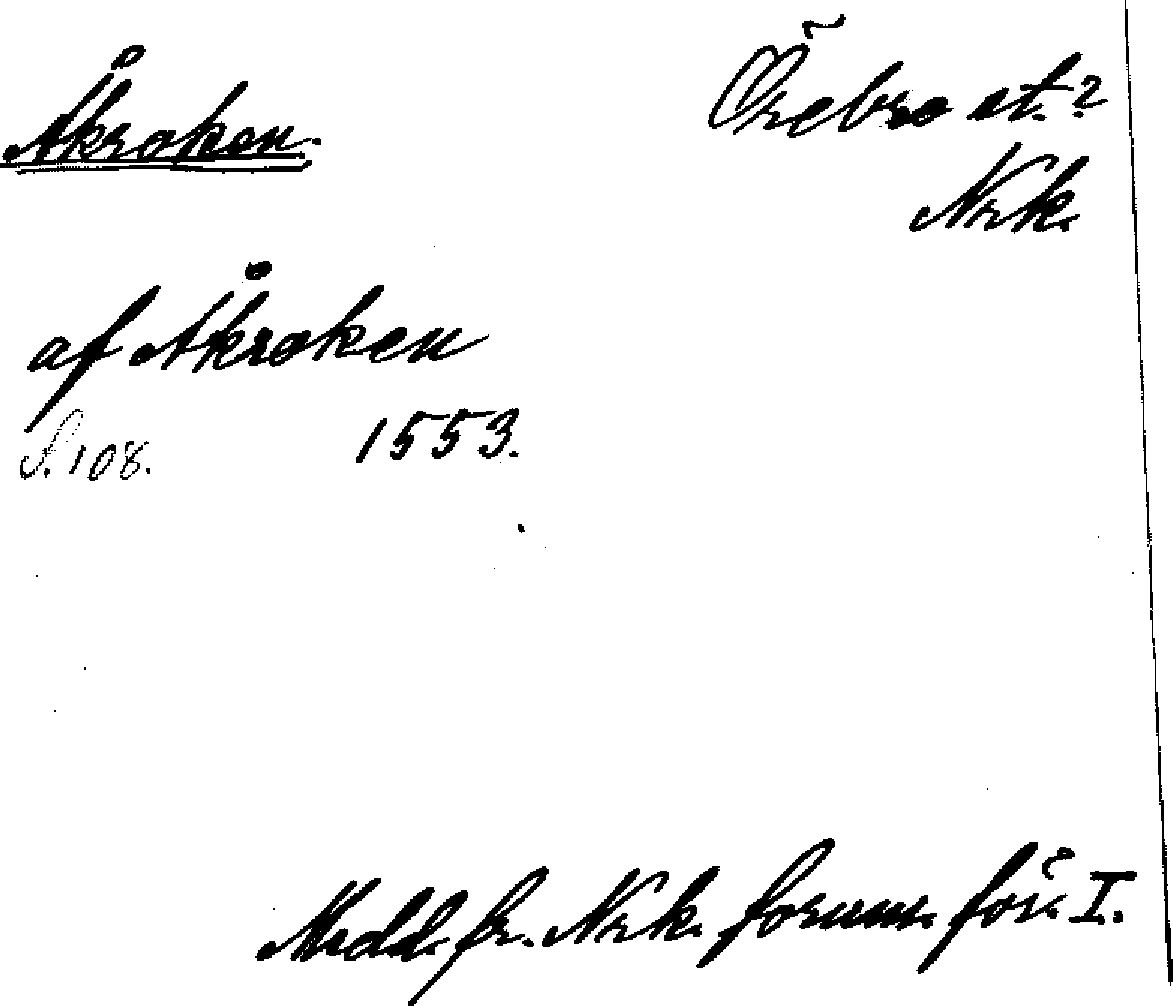 Åkroken.
Örebro st.?
Nrk.
af Åkroken
S. 108. 1553.
Medd. fr. Nrk. fornm. för. I.